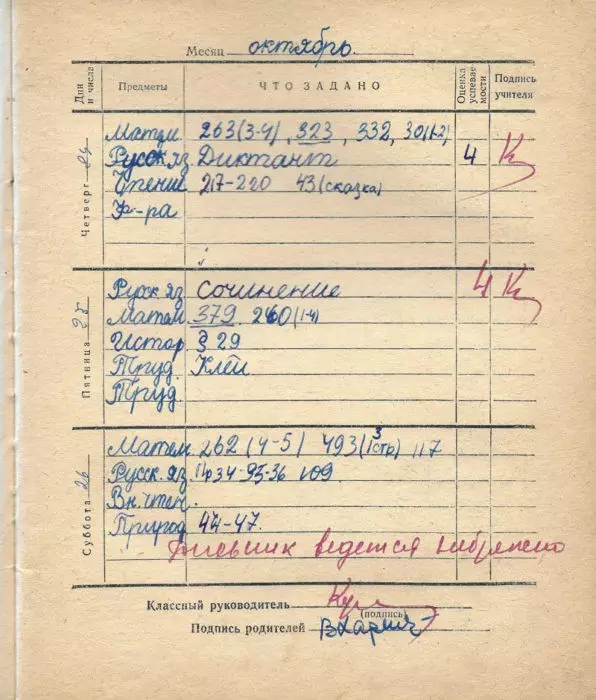 Месяц октябрь.
Дни и числа Предметы ЧТО ЗАДАНО Оценка успевае мости Подпись учителя
Четверг 24
Матем 263(3-4), 323, 332, 301(1-2)
Русск яз Диктант 4
Чтение 217-220 43(сказка)
Ф-ра
Пятница 25
Русск яз Сочинение 4
Матем 379 260(1-4)
Истор § 29
Труд. Клей
Труд.
Суббота 26
Матем 262 (4-5) 493(3 стр) 117
Русск. яз 34-35-36 109
Вн. чтен.
Природ 44-47.
Дневник ведется небрежно
Классный руководитель
(подпись)
Подпись родителей